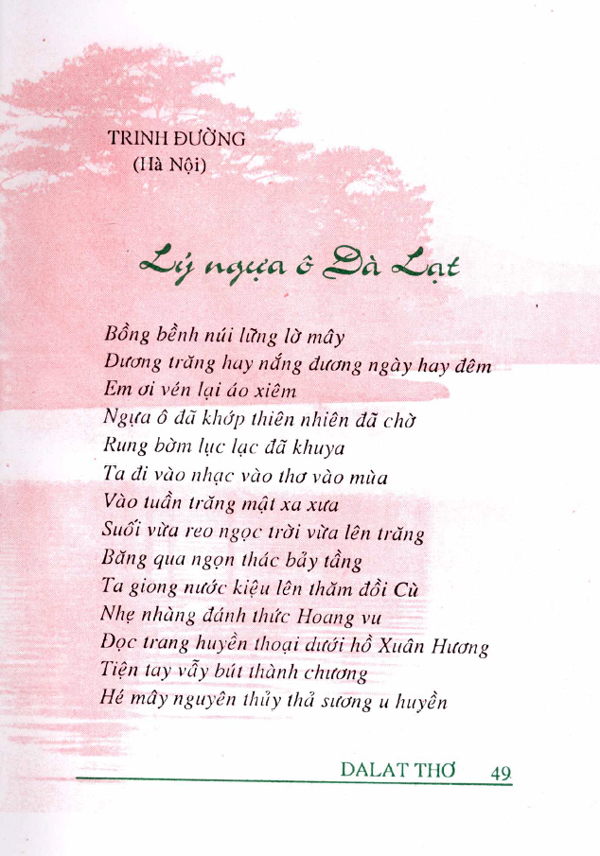 TRINH ĐƯỜNG
(Hà Nội)
Lý ngựa ô Đà Lạt
Bồng bềnh núi lững lờ mây
Đương trăng hay nắng đương ngày hay đêm
Em ơi vén lại áo xiêm
Ngựa ô đã khớp thiên nhiên đã chờ
Rung bờm lục lạc đã khuya
Ta đi vào nhạc vào thơ vào mùa
Vào tuần trăng mật xa xưa
Suối vừa reo ngọc trời vừa lên trăng
Băng qua ngọn thác bảy tầng
Ta giong nước kiệu lên thăm đồi Cù
Nhẹ nhàng đánh thức Hoang vu
Đọc trang huyền thoại dưới hồ Xuân Hương
Tiện tay vẫy bút thành chương
Hé mây nguyên thủy thả sương u huyền
DALAT THƠ 49